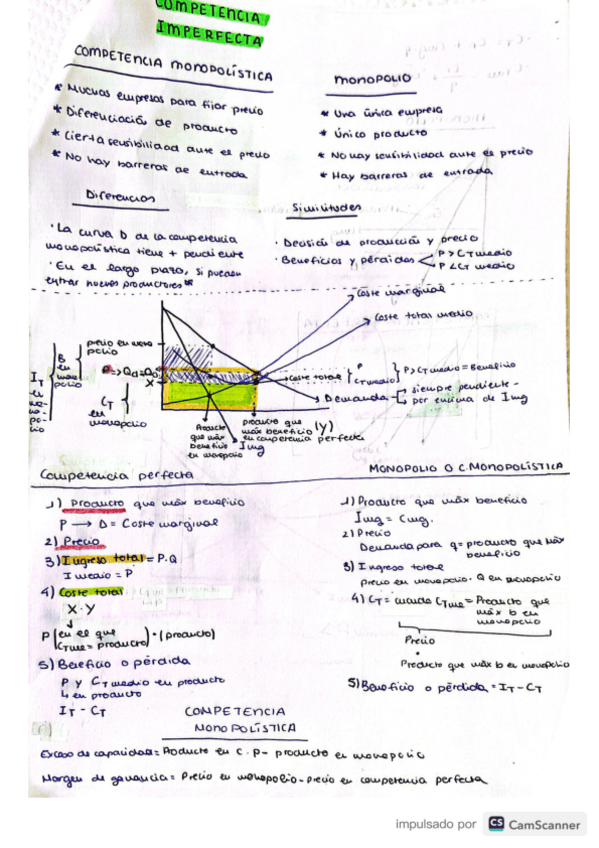 COMPETENCIA
IMPERFECTA
COMPETENCIA MONOPOLÍSTICA
* Muchas empresas para fijar precio
* Diferenciación de producto
* Cierta sensibilidad ante el precio
* No hay barreras de entrada
MONOPOLIO
* Una única empresa
* Único producto
* No hay sensibilidad ante el precio
* Hay barreras de entrada
Diferencias
· La curva D de la competencia
monopolística tiene + pendiente
· En el largo plazo, si pueden
entrar nuevos productores
Similitudes
· Decisión de producción y precio
· Beneficios y pérdidas
P > CT medio
P < CT medio
Coste marginal
Coste total medio
precio en mono
polio
B
en
mono
polio
IT
en
mo-
no-
po-
lio
CT
en
monopolio
X
Coste total
P
CT medio
P > CT medio = Beneficio
Demanda
siempre pendiente -
por encima de Img
Producto
que máx
beneficio
en monopolio
Img
producto que
máx beneficio (Y)
en competencia perfecta
Competencia perfecta
1) Producto que máx beneficio
P → D = Coste marginal
2) Precio
3) Ingreso total = P.Q
I medio = P
4) Coste total
X · Y
P (en el que
CTme = producto) · (producto)
5) Beneficio o pérdida
P y CT medio en producto
en producto
IT - CT
MONOPOLIO O C. MONOPOLÍSTICA
1) Producto que máx beneficio
Img = Cmg.
2) Precio
Demanda para q = producto que máx
beneficio
3) Ingreso total
precio en monopolio · Q en monopolio
4) CT = cuando CTme = Producto que
máx b en
monopolio
Precio
·
Producto que máx b en monopolio
5) Beneficio o pérdida = IT - CT
COMPETENCIA
MONOPOLÍSTICA
Exceso de capacidad = Producto en C.P - producto en monopolio
Margen de ganancia = Precio en monopolio - precio en competencia perfecta
impulsado por CS CamScanner